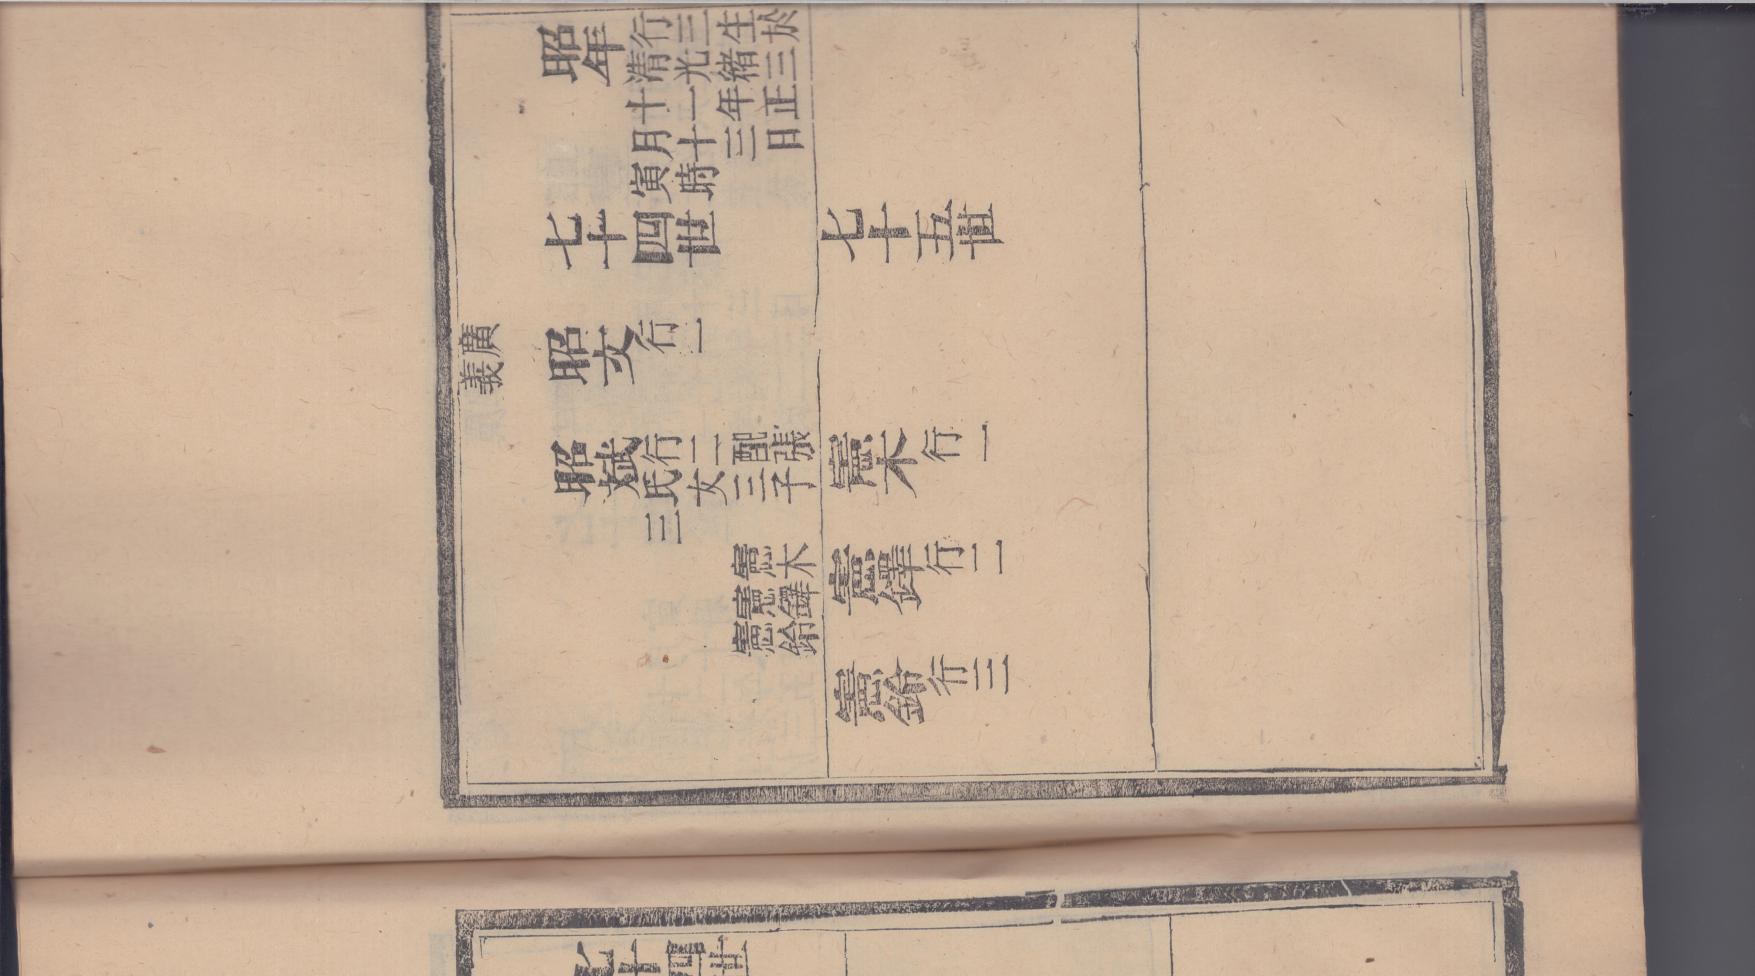 昭年
行三生於
清光緒三
十一年正
月十三日
寅時
七十四世
七十五世
廣
義
昭文
行一
昭斌
行二配張
氏女三子
三
憲木
憲鐸
憲鉿
憲木
行一
憲鐸
行二
憲鉿
行三
七十四世